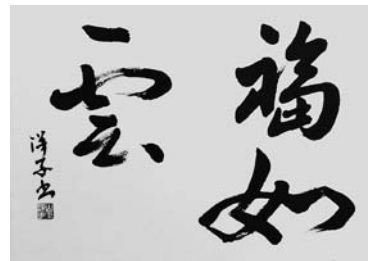 福如
雲
洋子书